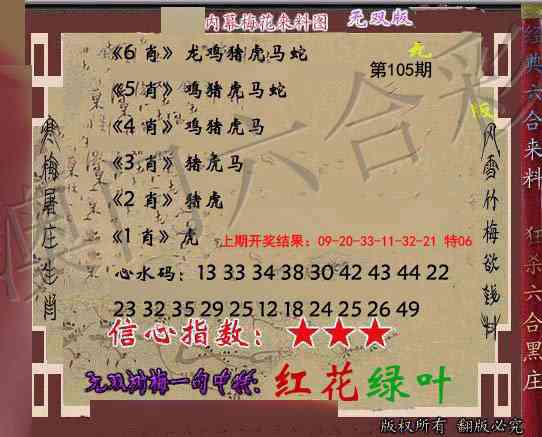 内幕梅花来料图 无双版
《6 肖》 龙鸡猪虎马蛇
第105期
《5 肖》 鸡猪虎马蛇
《4 肖》 鸡猪虎马
《3 肖》 猪虎马
《2 肖》 猪虎
《1 肖》 虎
上期开奖结果：09-20-33-11-32-21 特06
心水码：13 33 34 38 30 42 43 44 22
23 32 35 29 25 12 18 24 25 26 49
信心指数：★★★
一句中特：红花绿叶
寒梅屠庄生肖
风雪竹梅欲钱料
经典六合来料 狂杀六合黑庄
澳门六合彩
版权所有 翻版必究